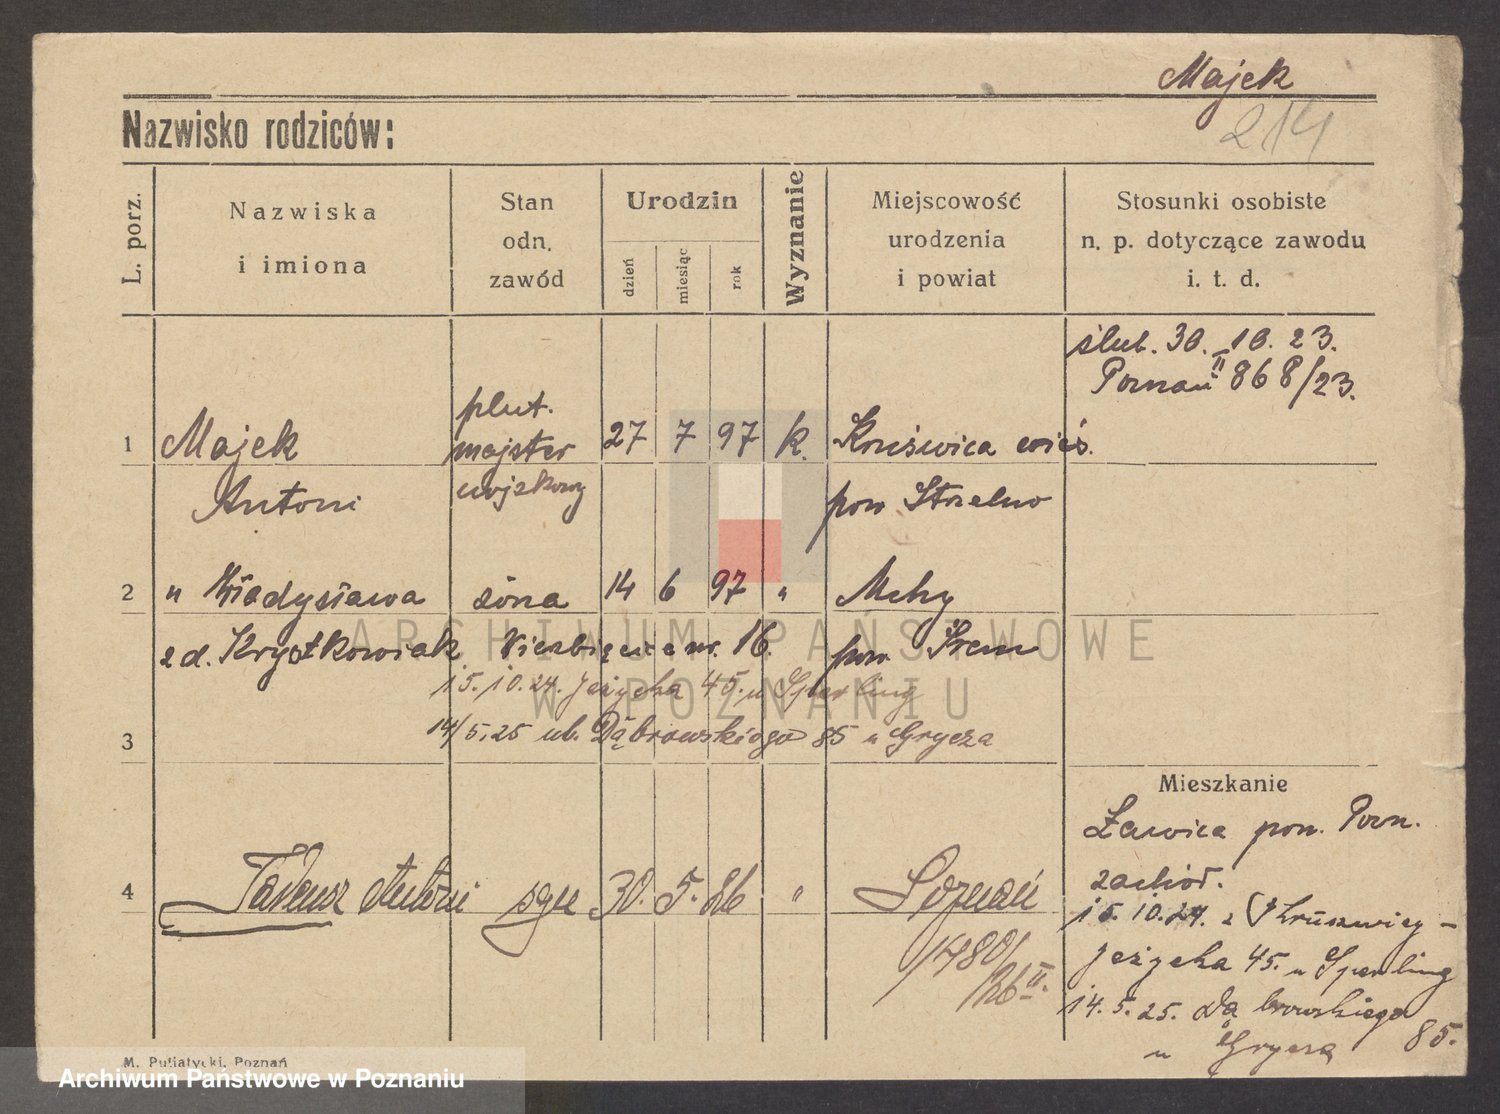 Majek
214
Nazwisko rodziców:
L. porz.
Nazwiska
i imiona
Stan
odn.
zawód
Urodzin
dzień
miesiąc
rok
Wyznanie
Miejscowość
urodzenia
i powiat
Stosunki osobiste
n. p. dotyczące zawodu
i. t. d.
ślub. 30. 10. 23.
Poznań II 868/23.
1 Majek plut. majster wojskowy 27 7 97 k. Kruświca wieś.
Antoni pow Strzelno
2 " Władysława żona 14 6 97 " Mchy
zd. Krystkowiak Wierzbięcice nr. 16. pow. Śrem
15.10.24. Jeżycka 45. u Sperling
3 14/5.25 ul. Dąbrowskiego 85 u Grycza
Mieszkanie
Ławica pow. Pozn.
zachód.
15.10.24. z Kruszwicy -
Jeżycka 45. u Sperling
14.5.25. Dąbrowskiego
85.
u Grycza
4 Tadeusz Antoni syn 30. 5. 26 " Poznań
1480/
/26 II.
M. Putiatycki, Poznań
ARCHIWUM PAŃSTWOWE
W POZNANIU
Archiwum Państwowe w Poznaniu